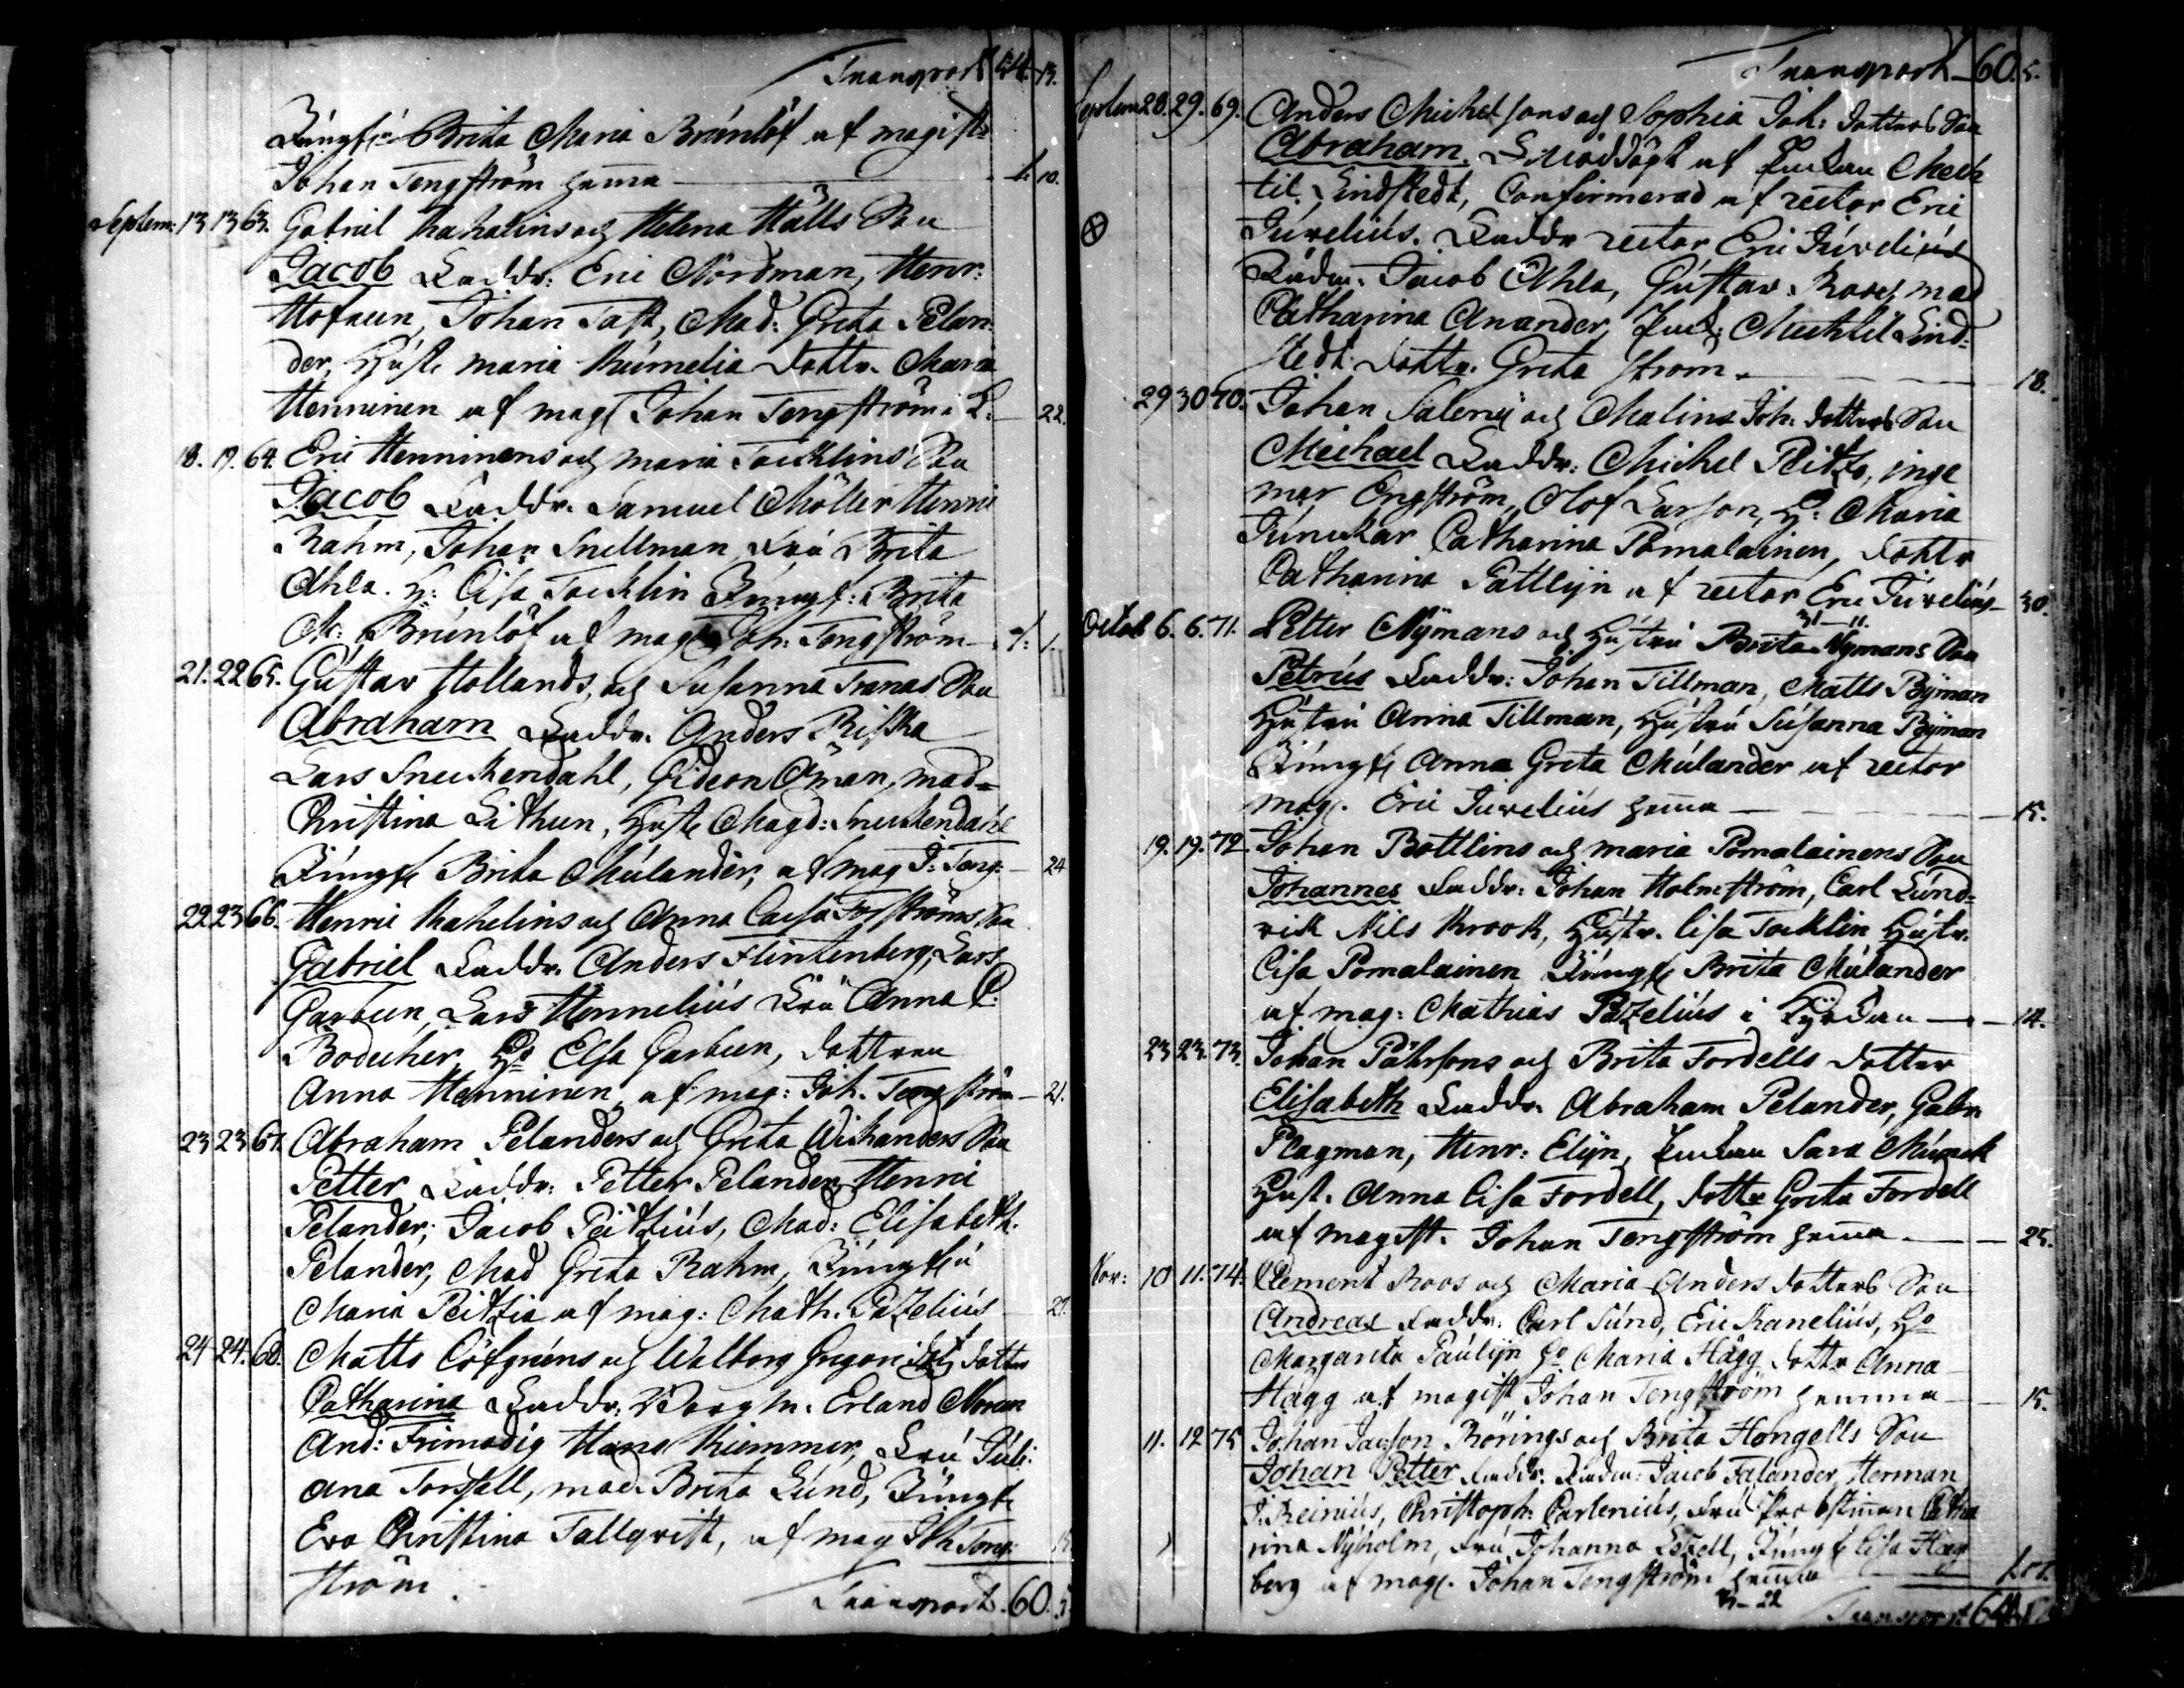 Transport 54. 13.
Jungfr: Brita Maria Brunlöf af magist:
Johan Tengström hema — 1. 10.
Septem: 13 13 63. Gabriel Kahelins och Helena Mälls Son
Jacob Faddr: Eric Nordman, Henr:
Hofreen, Johan Fast, Mad: Greta Pelan-
der, Hustr maria Rumelia dottr. Maria
Henninen af mag Johan Tengström i K. — 22.
18. 19. 64. Eric Henninens och maria Tacklins Son
Jacob Faddr. Samuel Möller Henric
Rahm, Johan Snellman Fru Brita
Ahla. H: Lisa Tacklin Jungf: Brita
M: Brunlöf af mag Joh: Tengström — 1: 1.
21. 22 65. Gustav Hollands, och Susanna Franas Son
Abraham Faddr. Anders Riska
Lars Sneckendahl, Gideon Åman, mad=
Christina Lithun, Hustr Magd: Sneckendahl
Jungfr Brita Mulander, af mag J: Teng: — 24
22 23 66. Henric Kahelins och Anna Caisa Forströms Son
Gabriel Faddr. Anders Flintenberg, Lars
Garbeen, Lars Hennelius Fru Anna C:
Bodecher, Ho Elsa Garbeen, dottren
Anna Henninen, af mag: Joh. Tengström — 21.
23 23 67. Abraham Pelanders och Greta Wichanders Son
Petter Faddr. Petter Pelander, Henric
Pelander, Jacob Peitzius, Mad: Elisabeth
Pelander, Mad Greta Rahm, Jungfru
Maria Peitzia af mag: Math. Pazelius — 27.
24 24. 68. Matts Löfgrens och Walborg Gregori dotter
Catharina Faddr. Borgm. Erland Noreen
And: Frimodig Hans Kiemmer, Fru Juli:
ana Forssell, mad. Brita Lund, Jungfr
Eva Christina Tallqvist, af mag Joh Teng:
ström.
Transport. 60. 5.
Transport 60. 5.
Septem 28. 29. 69. Anders Michelsons och Sophia Joh: dotters Son
Abraham. af Enkan Mech
til. Lindstedt, Confirmerad af rector Eric
Juvelius. Faddr rector Eric Juvelius
Rådm. Jacob Ahla, Gustav. Roos, mad
Catharina Anander, Enk: Mechtil Lind=
stedt. dottr. Greta Ström. — 18.
29 30 70. Johan Salenii och Malins Joh: dotters Son
Michael Faddr: Michel Peitzo, inge
mar Engström, Olof Larson, H: Maria
Junnkar Catharina Pomalainen, dottr
Catharina Pattlijn af rector Eric Juvelius — 30.
31 — 11.
Octob 6. 6. 71. Petter Nÿmans och Hustru Brita Nÿmans Son
Petrus Faddr: Johan Tillman, Matts Bÿman
Hustru Anna Tillman, Hustru Susanna Bÿman
Jungfr Anna Greta Mulander af rector
mag. Eric Juvelius hema — 15.
19. 19. 72 Johan Bottlins och maria Pomalainens Son
Johannes Faddr: Johan Holmström, Carl Lund=
vik Nils Krook, Hustr. Lisa Tacklin Hustr.
Lisa Pomalainen Jungfr Brita Mulander
af mag: Mathias Pazelius i Kyrckan — 14.
23 23. 73. Johan Påhlsons och Brita Fordells dotter
Elisabeth Faddr. Abraham Pelander, Gabr
Plagman, Henr: Elijn, Enkan Sara Munck
Hust. Anna Lisa Fordell, dottr Greta Fordell
af magist. Johan Tengström hema. — 25.
Nov: 10 11. 74. Clement Roos och Maria Anders dotters Son
Andreas Faddr. Carl Sund, Eric Kanelius, Ho
Margareta Paulijn Ho Maria Hägg dottr Anna
Hägg af magist Johan Tengström hemma — 15.
11. 12 75 Johan Jacson Rörings och Brita Hongells Son
Johan Petter Faddr. Rådm: Jacob Falander, Herman
J. Reinius, Christoph: Carlenius, Fru Catha
rina Nÿholm, Fru Johanna Ezell, Jungfr Lisa Hag
berg af mag. Johan Tengström hema
31 — 22
Transport. 64.